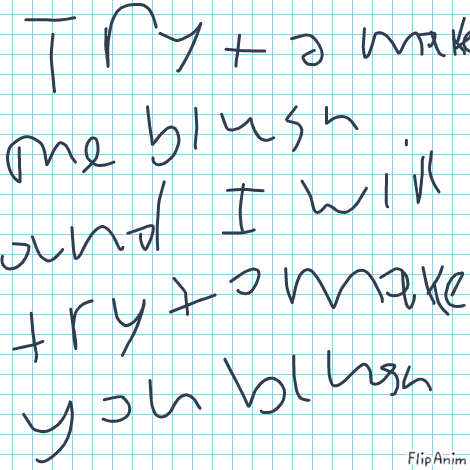 Try to make
me blush
and I will
try to make
you blush
FlipAnim